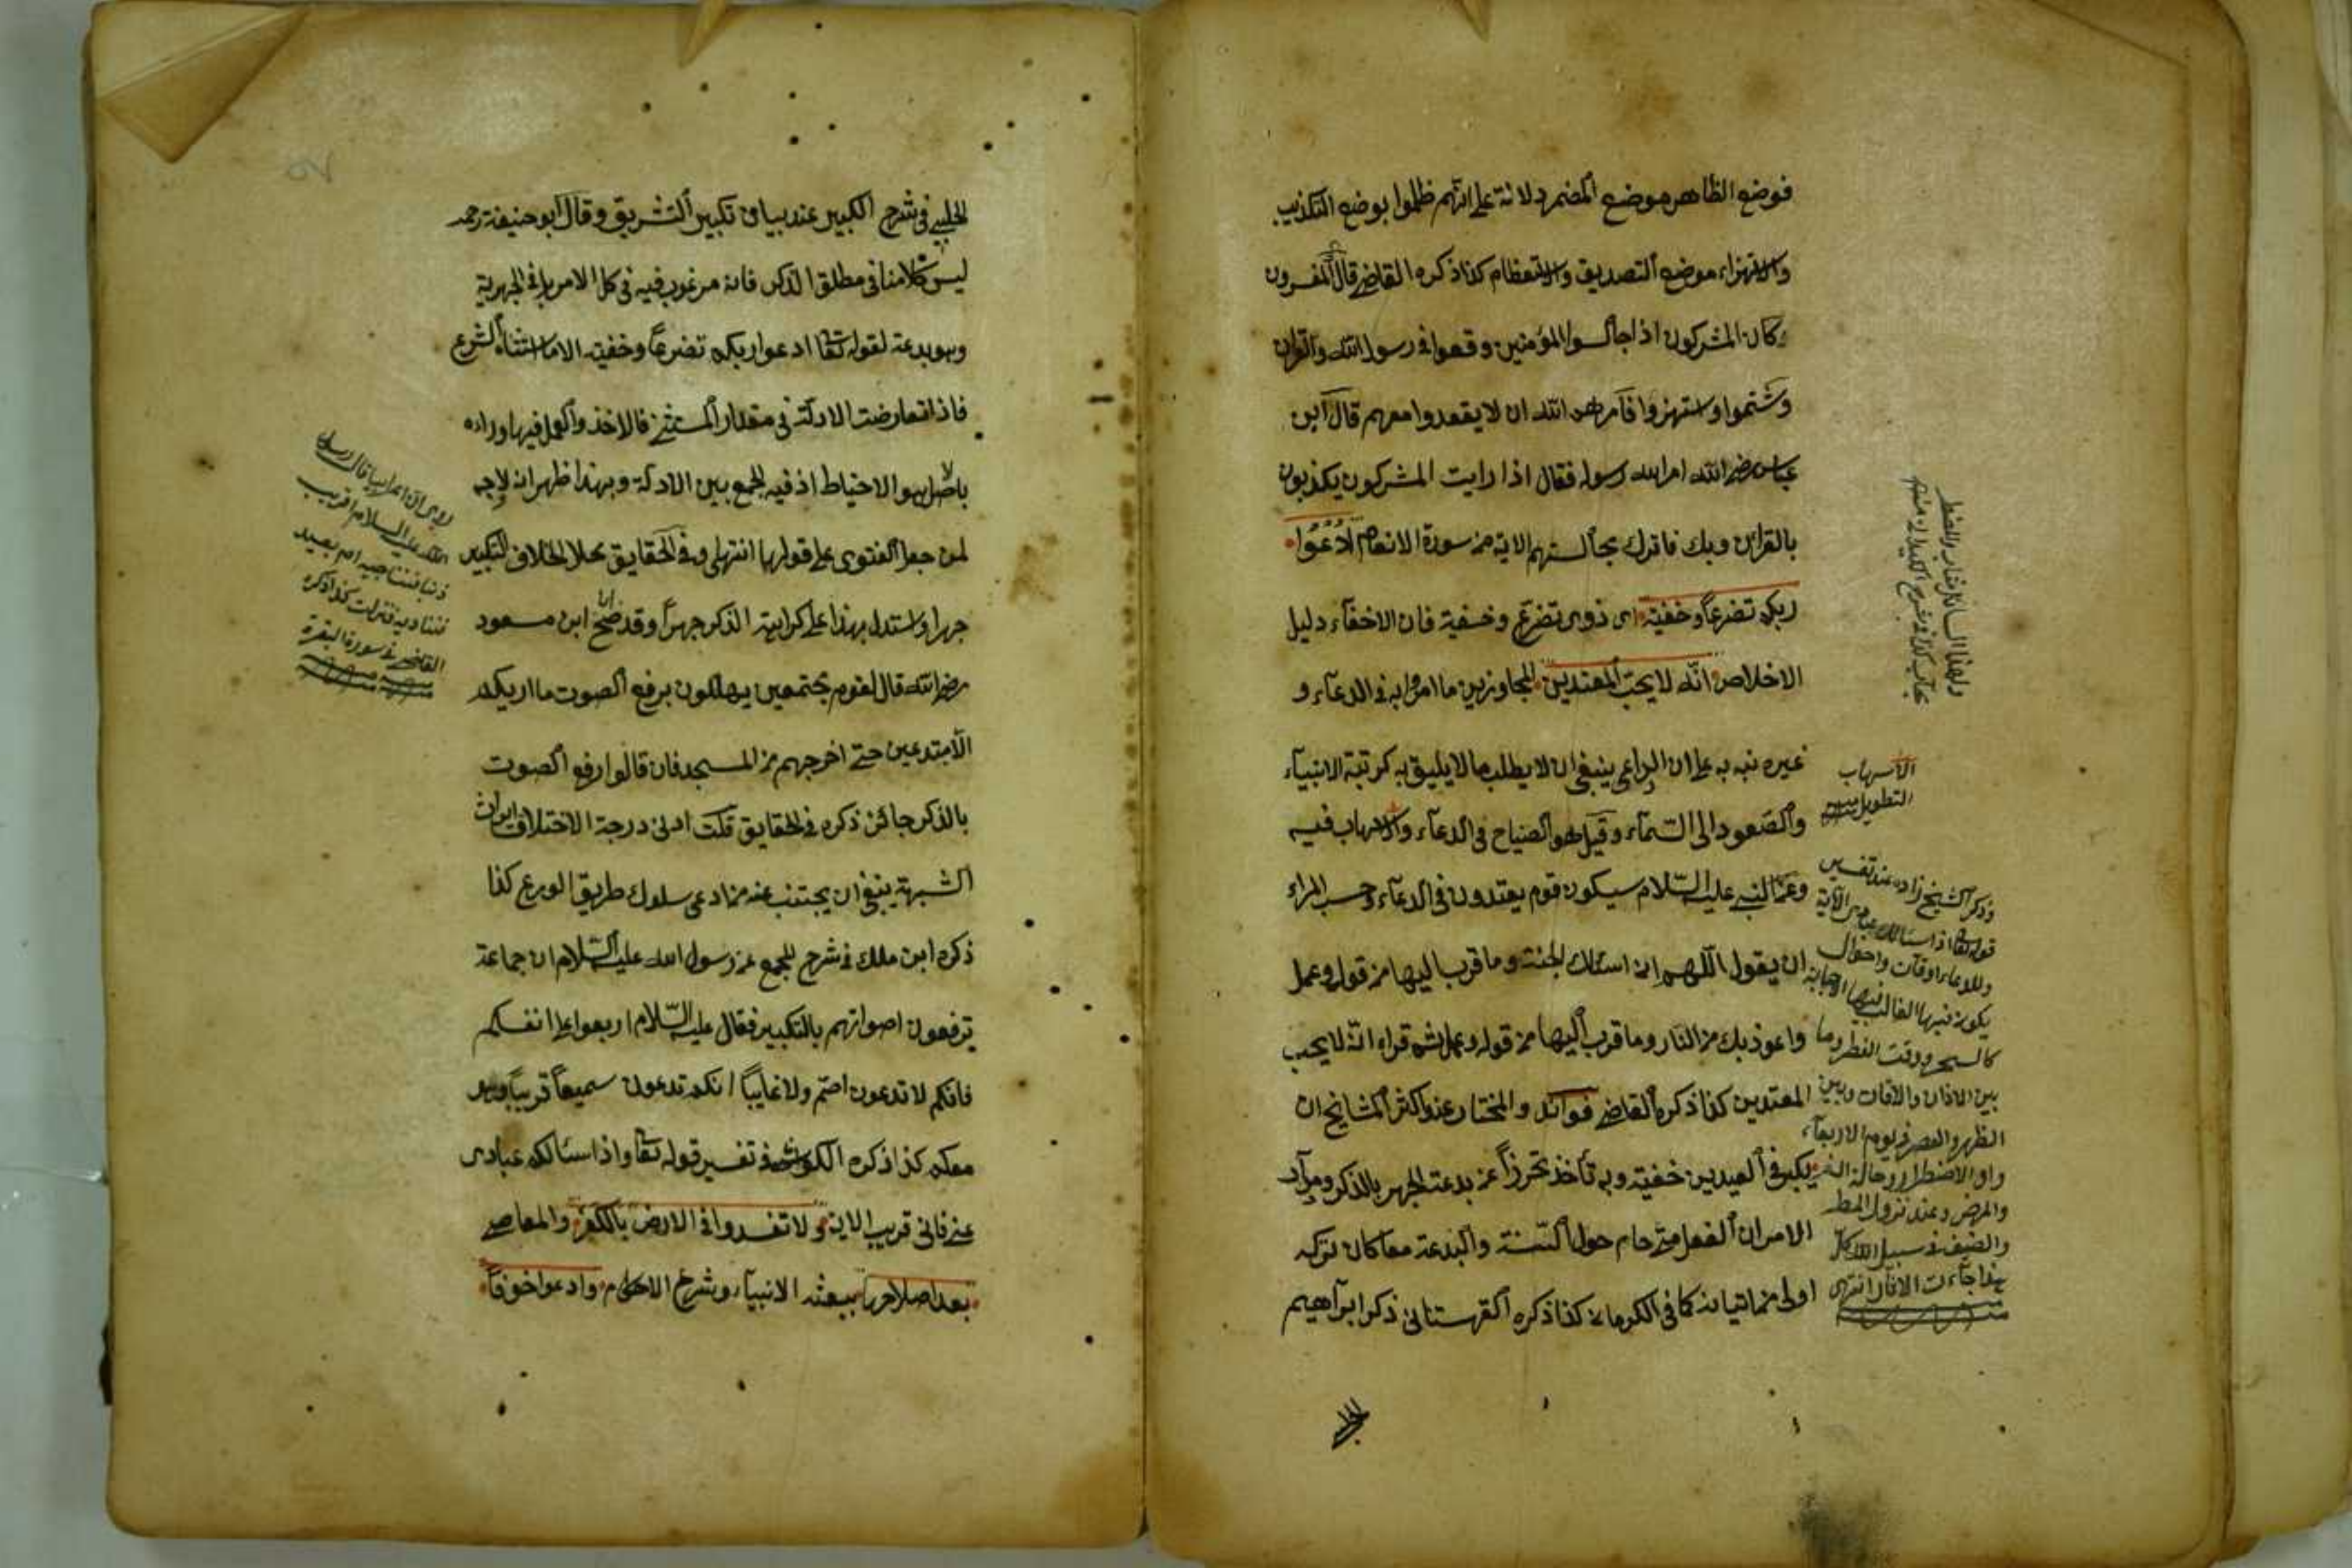 فوضع الظاهر موضع المضمر دلالة على انهم ظلموا بوضع التكذيب
والاستهزاء موضع التصديق والاستعظام كذا ذكره القاضي قال المفسرون
كان المشركون اذا جالسوا المؤمنين وقعوا في رسول الله والقران
وشتموا واستهزوا فامرهم الله ان لا يقعدوا معهم قال ابن
عباس رضي الله امر الله رسوله فقال اذا رايت المشركون يكذبون
بالقران وبك فاترك مجالستهم الاية من سورة الانعام ادعوا
ربكم تضرعا وخفية اى ذوى تضرع وخفية فان الاخفاء دليل
الاخلاص انه لا يحب المعتدين المجاوزين ما امروا به في الدعاء و
غيره نبه به على ان الداعي ينبغي ان لا يطلب ما لا يليق به كرتبة الانبياء
والصعود الى السماء وقيل هو الصياح في الدعاء والاسهاب فيه
وعن النبي عليه السلام سيكون قوم يعتدون في الدعاء وحسب المراء
ان يقول اللهم انى اسئلك الجنة وما قرب اليها من قول وعمل
واعوذ بك من النار وما قرب اليها من قول وعمل ثم قراء انه لا يحب
المعتدين كذا ذكره القاضي فوائد والمختار عند اكثر المشايخ ان
يكبر في العيدين خفية وبه تأخذ تحرزا عن بدعة الجهر بالذكر ومآل
الامر ان الفعل متى حام حول السنة والبدعة معا كان تركه
اولى من اتيانه كما في الكرماني كذا ذكره القهستاني ذكر ابراهيم
الاسهاب
التطويل منه
وذكر الشيخ زاده عند تفسير
قوله تعالى اذا سئالك عبادى الاية
وللدعاء اوقات واحوال
يكون فيها الغالب فيها الاجابة
كالسحر ووقت الفطر وما
بين الاذان والاقامة وبين
الظهر والعصر في يوم الاربعاء
والاضطرار وحالة السفر
والمرض وعند نزول المطر
والصف في سبيل الله كل
هذا جاءت الاثار انتهى
الحلبي في شرح الكبير عند بيان تكبير التشريق وقال ابو حنيفة رحمه
ليس كلامنا في مطلق الذكر فانه مرغوب فيه في كل الامر بل في الجهرية
وهو بدعة لقوله تعالى ادعوا ربكم تضرعا وخفية الا ما استثناه الشرع
فاذا تعارضت الادلة في مقدار المستثنى فالاخذ والعمل فيما وراءه
بالاصل هو الاحتياط اذ فيه الجمع بين الادلة وبهذا ظهر انه لا وجه
لمن جعل الفتوى على قولهما انتهى وفي الحقايق محل الخلاف التكبير
جهرا واستدل بهذا على كراهية الذكر جهرا وقد صح ان ابن مسعود
رضي الله قال لقوم مجتمعين يهللون برفع الصوت ما اريكم
الا مبتدعين حتى اخرجهم من المسجد فان قالوا رفع الصوت
بالذكر جائز ذكره في الحقايق قلت ادنى درجة الاختلاف ايراث
الشبهة ينبغي ان يجتنب عنه من ادعى سلوك طريق الورع كذا
ذكره ابن ملك في شرح المجمع عن رسول الله عليه السلام ان جماعة
ترفعون اصواتهم بالتكبير فقال عليه السلام اربعوا على انفسكم
فانكم لا تدعون اصم ولا غايبا انكم تدعون سميعا قريبا وهو
معكم كذا ذكره الكواشى في تفسير قوله تعالى واذا سئالك عبادى
عنى فانى قريب الاية ولا تفسدوا في الارض بالكفر والمعاصي
بعد اصلاحها ببعثه الانبياء وشرع الاحكام وادعوا خوفا
روى ان اعرابيا قال لرسول
الله عليه السلام اقريب
ربنا فنناجيه ام بعيد
فنناديه فنزلت كذا ذكره
القاضي في سورة البقرة